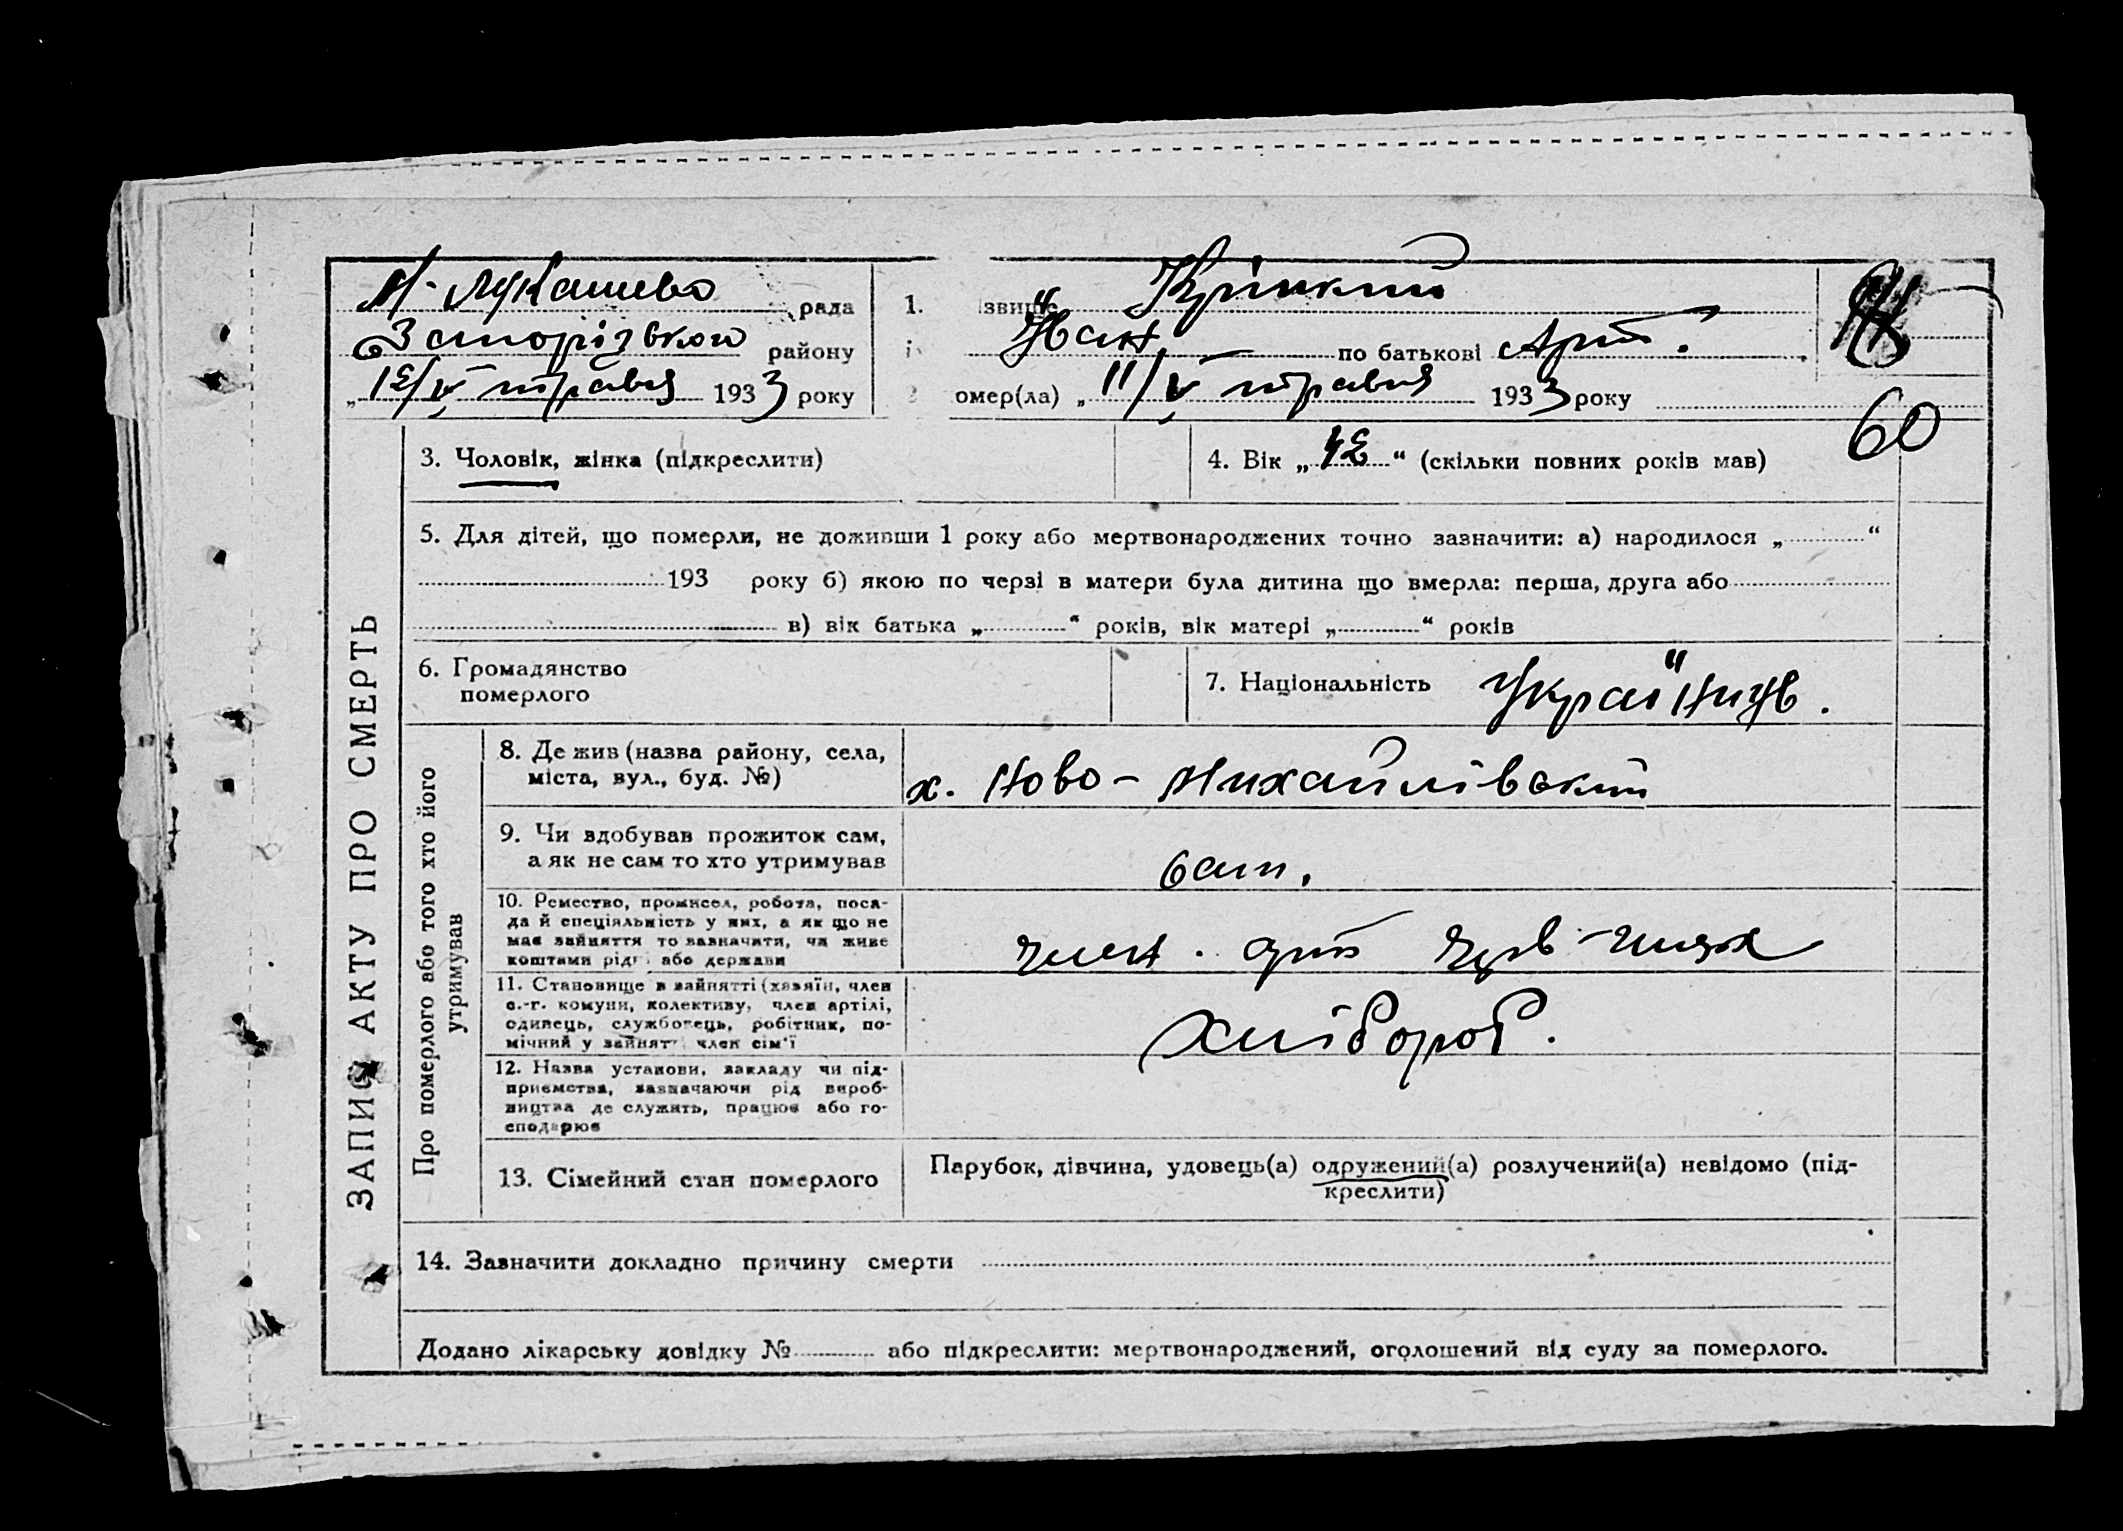 М-Лукашево рада
Запорізького району
"12/V травня 1933 року
1. звище Кріпкий
Іван по батькові Арт.
омер(ла) "11/V травня 1933 року
60
3. Чоловік, жінка (підкреслити)
4. Вік "42" (скільки повних років мав)
5. Для дітей, що померли, не доживши 1 року або мертвонароджених точно зазначити: а) народилося " "
193 року б) якою по черзі в матери була дитина що вмерла: перша, друга або
в) вік батька " " років, вік матері " " років
6. Громадянство
померлого
7. Національність Українць.
ЗАПИС АКТУ ПРО СМЕРТЬ
Про померлого або того хто його
утримував
8. Де жив (назва району, села,
міста, вул., буд. №)
х. Ново-Михайлівский
9. Чи вдобував прожиток сам,
а як не сам то хто утримував
сам.
10. Ремество, промисел, робота, поса-
да й спеціяльність у них, а як що не
має зайняття то зазначити, чи живе
коштами рідні або держави
член. арт
11. Становище в зайнятті (хазяїн, член
с.-г. комуни, колективу, член артілі,
одинець, службовець, робітник, по-
мічний у зайнятт член сім'ї
Хлібороб.
12. Назва установи, закладу чи під-
приємства, зазначаючи рід вироб-
ництва де служить, працює або го-
сподарює
13. Сімейний стан померлого
Парубок, дівчина, удовець(а) одружений(а) розлучений(а) невідомо (під-
креслити)
14. Зазначити докладно причину смерти
Додано лікарську довідку № або підкреслити: мертвонароджений, оголошений від суду за померлого.